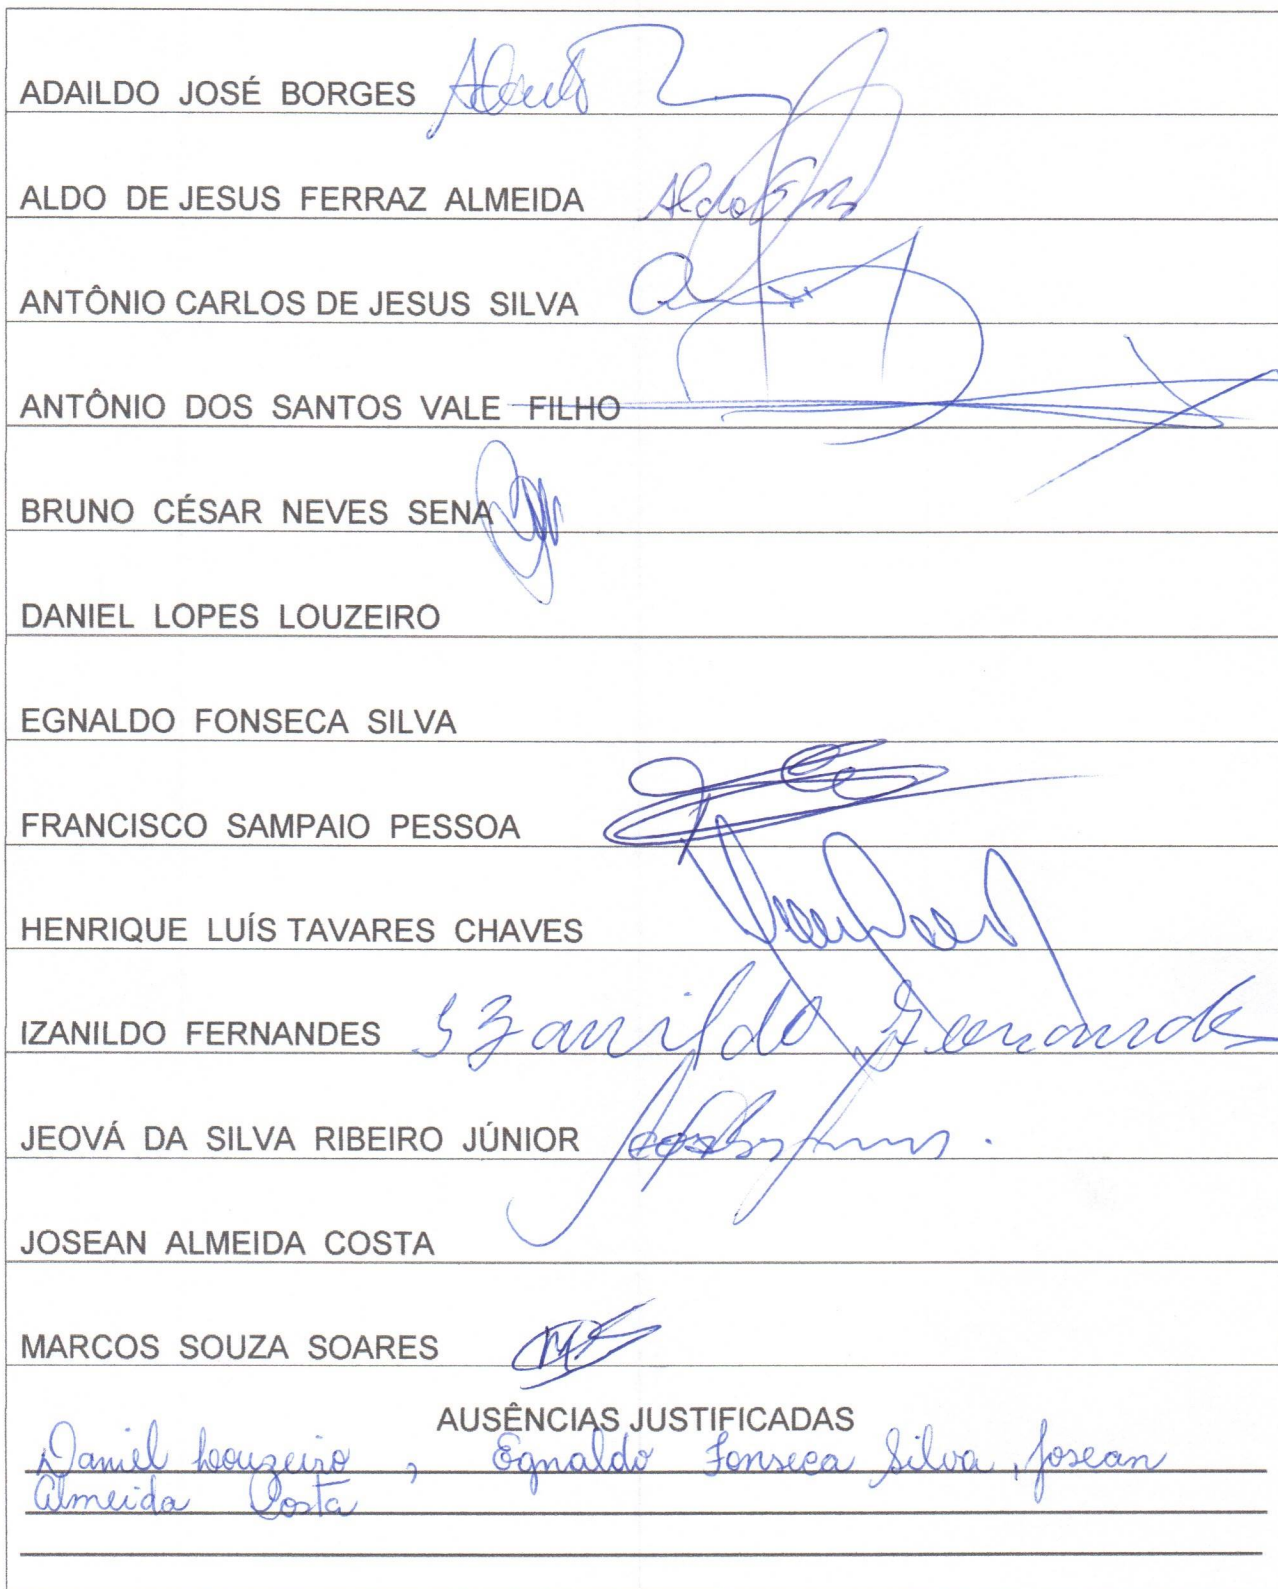 ADAILDO JOSÉ BORGES
ALDO DE JESUS FERRAZ ALMEIDA Aldo
ANTÔNIO CARLOS DE JESUS SILVA
ANTÔNIO DOS SANTOS VALE FILHO
BRUNO CÉSAR NEVES SENA
DANIEL LOPES LOUZEIRO
EGNALDO FONSECA SILVA
FRANCISCO SAMPAIO PESSOA
HENRIQUE LUÍS TAVARES CHAVES
IZANILDO FERNANDES Izanildo Fernandes
JEOVÁ DA SILVA RIBEIRO JÚNIOR
JOSEAN ALMEIDA COSTA
MARCOS SOUZA SOARES
AUSÊNCIAS JUSTIFICADAS
Daniel Louzeiro, Egnaldo Fonseca Silva, Josean
Almeida Costa